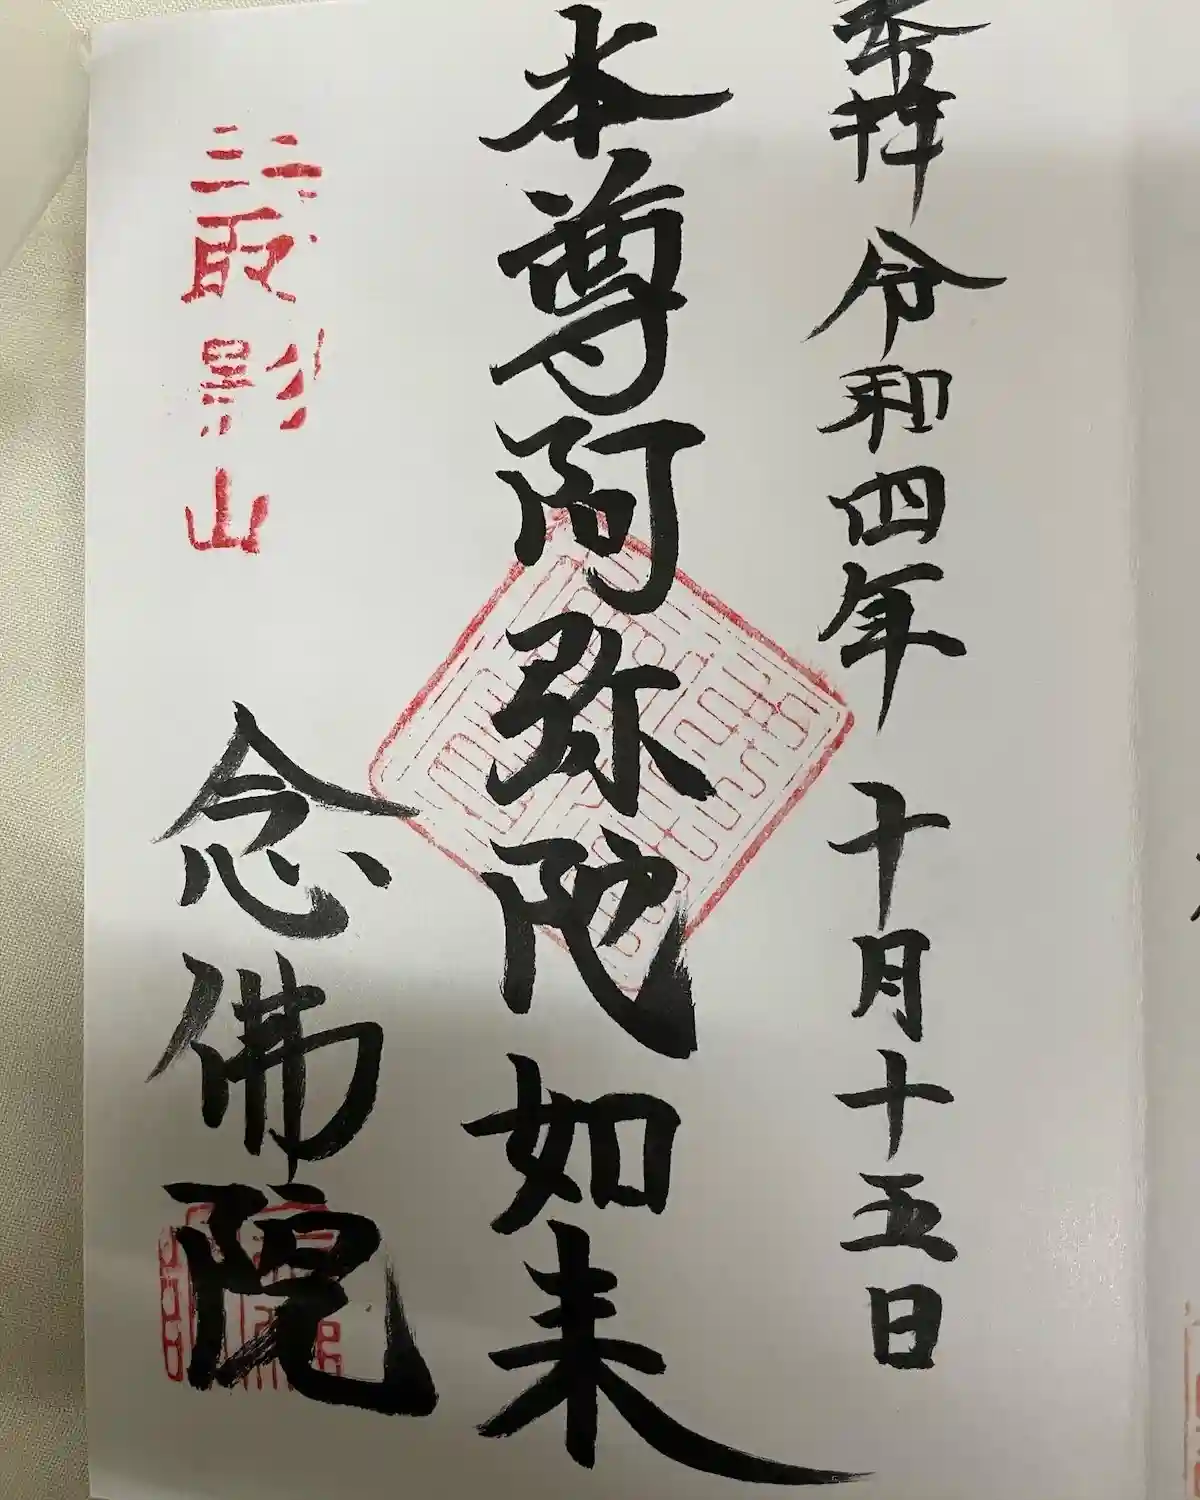 奉拝 令和四年 十月十五日
本尊阿弥陀如来
影山
念佛院